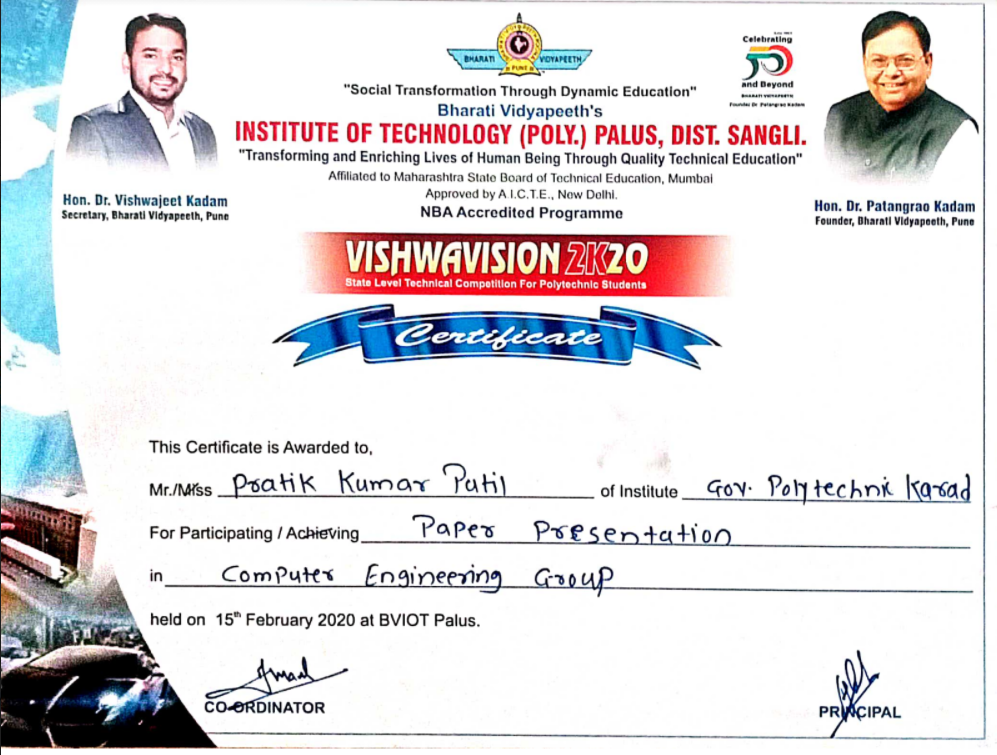 BHARATI VIDYAPEETH
PUNE
Celebrating
50
and Beyond
BHARATI VIDYAPEETH
Founder Dr. Patangrao Kadam
"Social Transformation Through Dynamic Education"
Bharati Vidyapeeth's
INSTITUTE OF TECHNOLOGY (POLY.) PALUS, DIST. SANGLI.
"Transforming and Enriching Lives of Human Being Through Quality Technical Education"
Affiliated to Maharashtra State Board of Technical Education, Mumbai
Approved by A.I.C.T.E., New Delhi.
NBA Accredited Programme
Hon. Dr. Vishwajeet Kadam
Secretary, Bharati Vidyapeeth, Pune
Hon. Dr. Patangrao Kadam
Founder, Bharati Vidyapeeth, Pune
VISHWAVISION 2K20
State Level Technical Competition For Polytechnic Students
Certificate
This Certificate is Awarded to,
Mr./Miss Pratik Kumar Patil of Institute Gov. Polytechnic Karad
For Participating / Achieving Paper Presentation
in Computer Engineering Group
held on 15th February 2020 at BVIOT Palus.
CO-ORDINATOR
PRINCIPAL